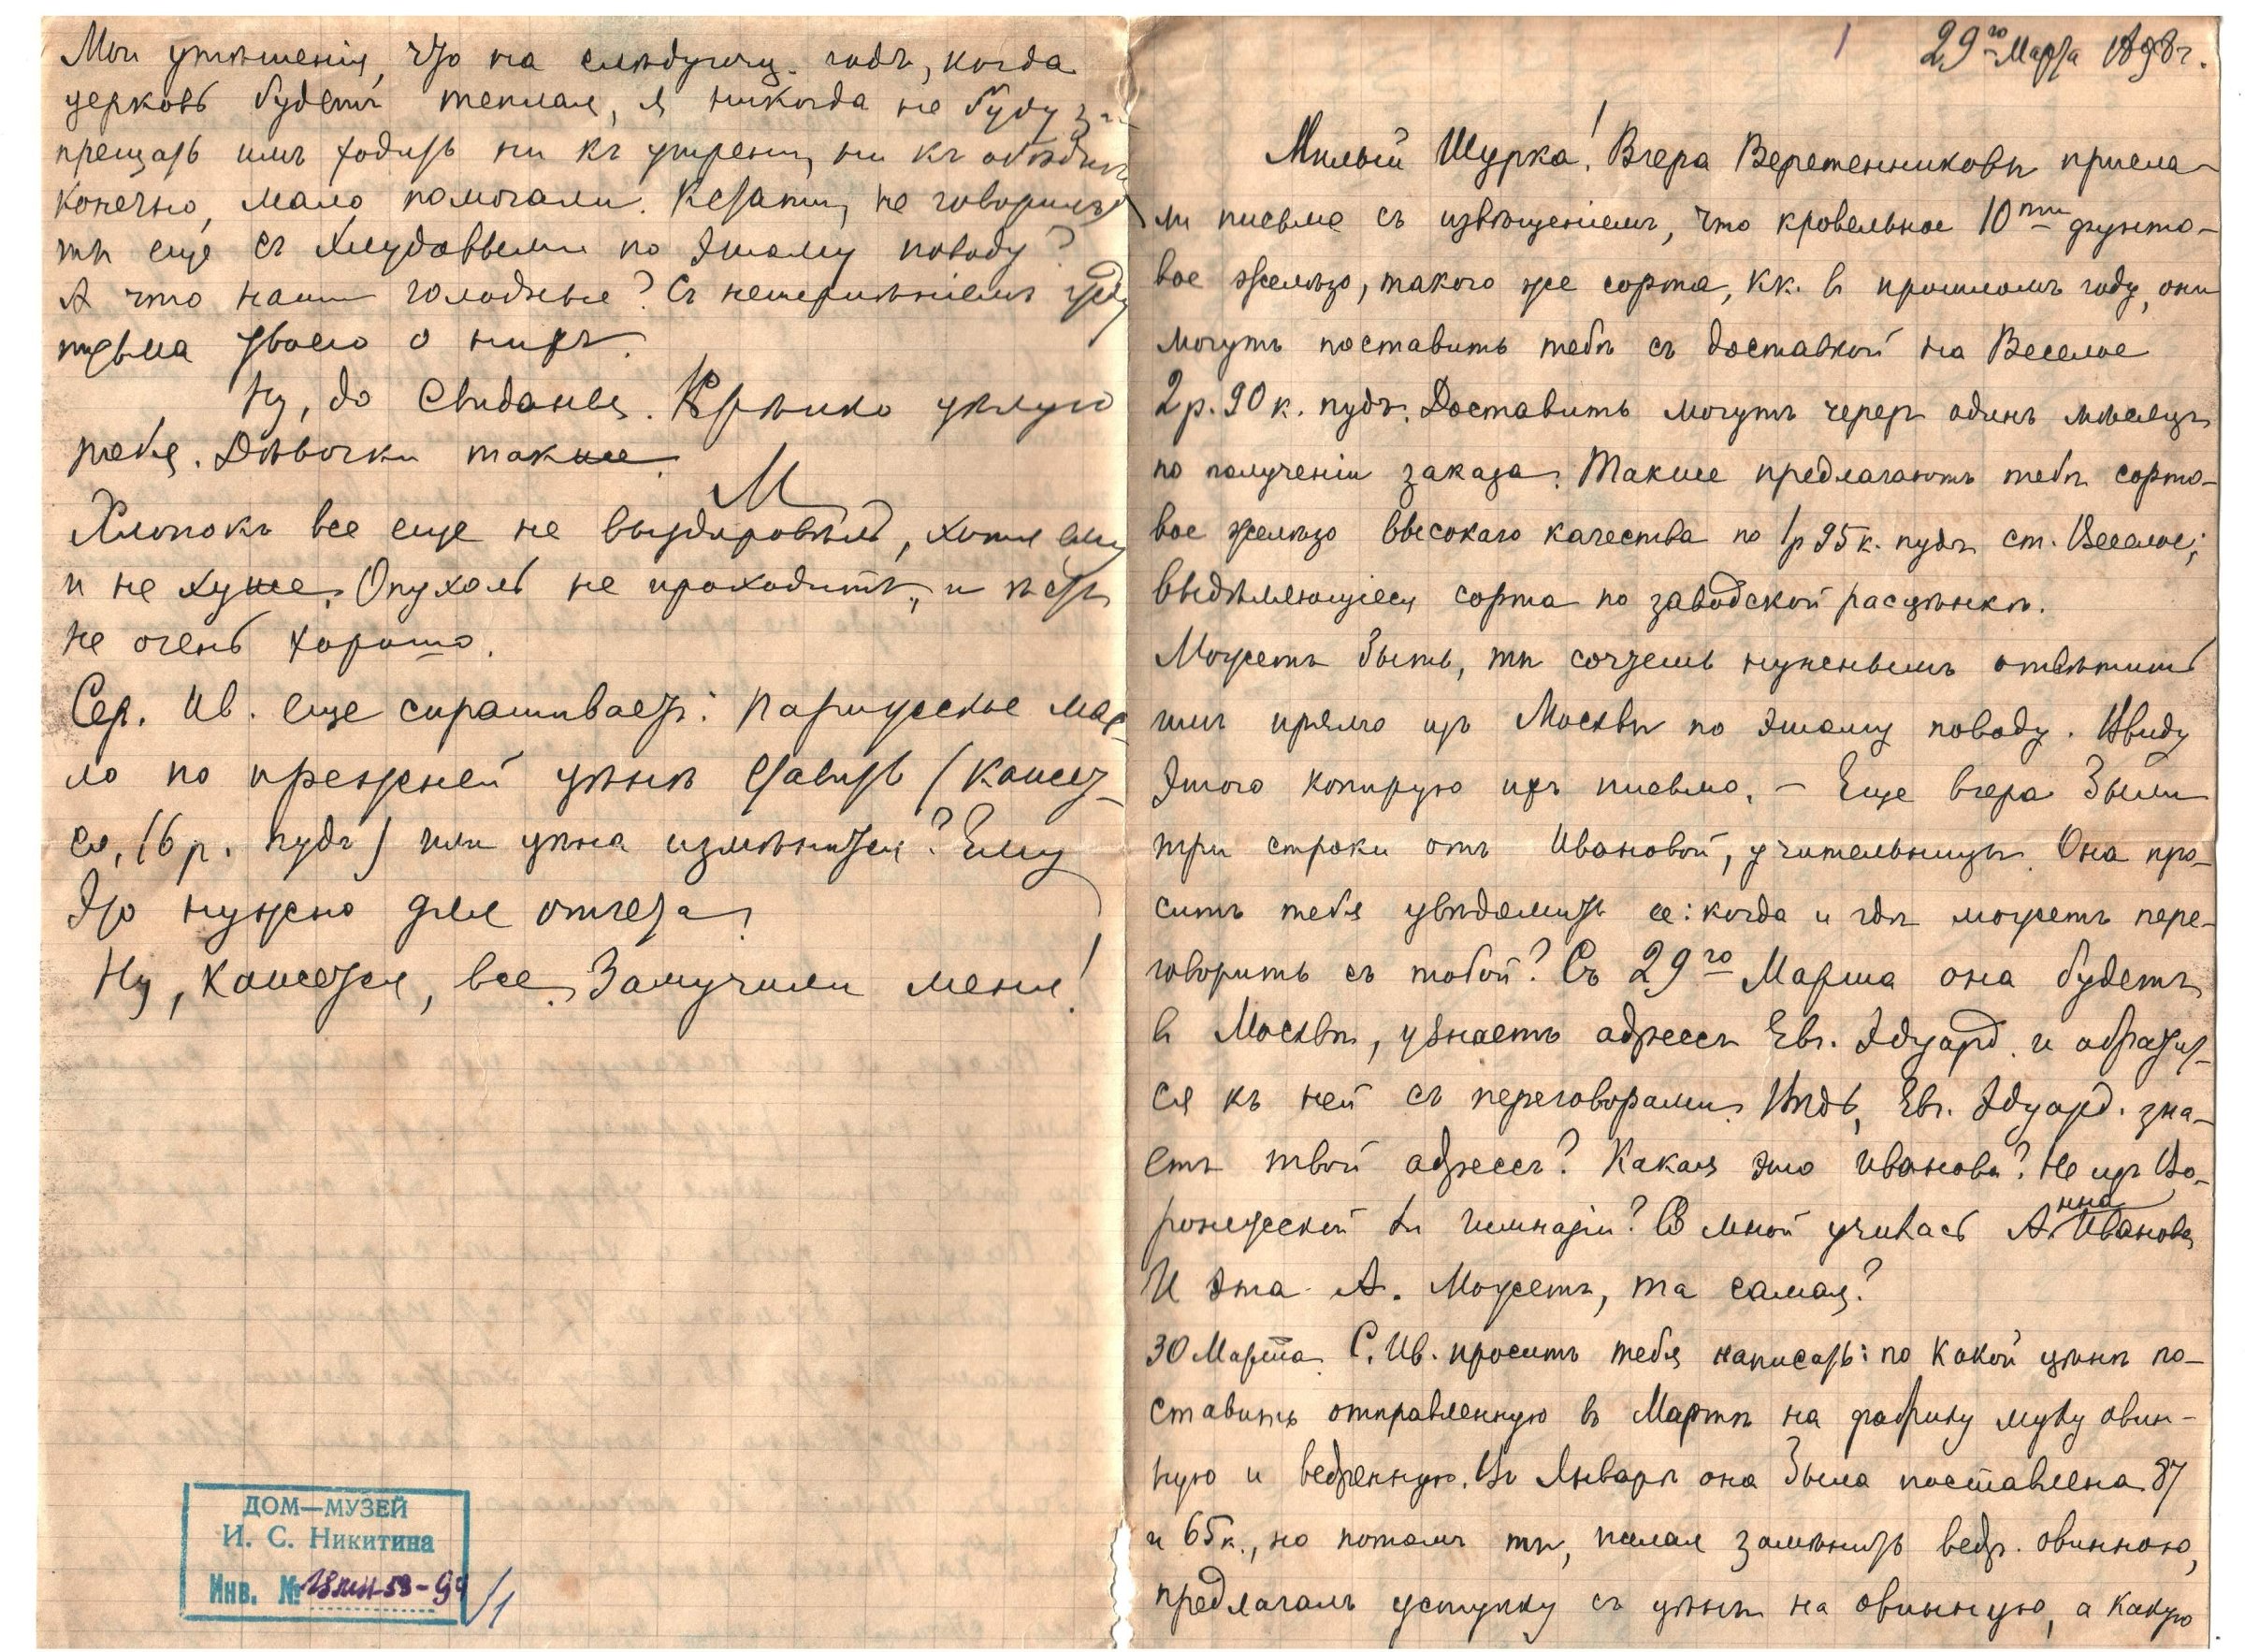 Мои утѣшенія, что на слѣдующ. годъ, когда
церковь будетъ теплая, я никогда не буду за-
прещать имъ ходить ни къ утрени, ни къ обѣдни
конечно, мало помогали. Кстати, не говорилъ
ты еще съ Хлудовыми по этому поводу?
А что наши голодные? Съ нетерпѣніемъ жду
письма твоего о нихъ.
Ну, до свиданья. Крѣпко цѣлую
тебя. Дѣвочки также.
М
Хлопокъ все еще не выздоровѣлъ, хотя ему
и не хуже. Опухоль не проходитъ, и ѣстъ
не очень хорошо.
Сер. Ив. еще спрашиваетъ: парижское мас-
ло по прежней цѣнѣ ставить (кажет-
ся, 16 р. пудъ) или цѣна измѣнится? Ему
это нужно для отчета.
Ну, кажется, все. Замучили меня!
ДОМ—МУЗЕЙ
И. С. Никитина
Инв. №
1
29го Марта 1898 г.
Милый Шурка! Вчера Веретенниковы присла-
ли письмо съ извѣщеніемъ, что кровельное 10ти фунто-
вое желѣзо, такого же сорта, кк. въ прошломъ году, они
могутъ поставить тебѣ съ доставкой на Веселое
2 р. 90 к. пудъ. Доставить могутъ черезъ одинъ мѣсяцъ
по полученіи заказа. Также предлагаютъ тебѣ сорто-
вое желѣзо высокаго качества по 1 р 95 к. пудъ ст. Веселое;
выдѣляющіеся сорта по заводской расцѣнкѣ.
Можетъ быть, ты сочтешь нужнымъ отвѣтить
имъ прямо изъ Москвы по этому поводу. Ввиду
этого копирую ихъ письмо. — Еще вчера были
три строки отъ Ивановой, учительницы. Она про-
ситъ тебя увѣдомить ее: когда и гдѣ можетъ пере-
говорить съ тобой? Съ 29го Марта она будетъ
въ Москвѣ, узнаетъ адресъ Евг. Эдуард. и обратит-
ся къ ней съ переговорами. Вѣдь, Евг. Эдуард. зна-
етъ твой адресъ? Какая это Иванова? Не изъ Во-
ронежской ли гимназіи? Со мной училась Анна Иванова
И эта А. Можетъ, та самая?
30 Марта. С. Ив. проситъ тебя написать: по какой цѣнѣ по-
ставить отправленную въ Мартѣ на фабрику муку овин-
ную и ведренную. Въ Январѣ она была поставлена 87
и 65 к., но потомъ ты, желая замѣнить ведр. овинною,
предлагалъ уступку съ цѣны на овинную, а какую